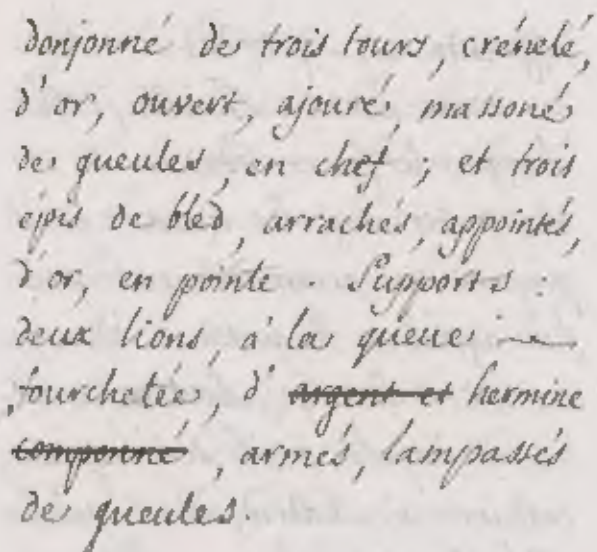 donjonné de trois tours, crénelé,
d'or, ouvert, ajouré, massoné
de gueules, en chef; et trois
épis de bled, arrachés, appointés,
d'or, en pointe. Supports:
deux lions, à la queue
fourchetée, d' argent et hermine
componné, armés, lampassés
de gueules.